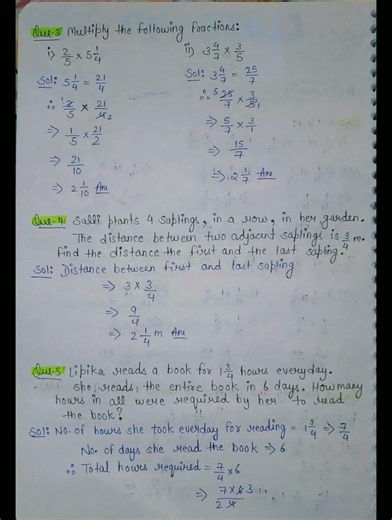 Que-3 Multiply the following fractions:
i) 2/5 × 5 1/4 ii) 3 4/7 × 3/5
Sol: 5 1/4 = 21/4 Sol: 3 4/7 = 25/7
∴ 2/5 × 21/4 2 ∴ 5 25/7 × 3/5 1
⇒ 1/5 × 21/2 ⇒ 5/7 × 3/1
⇒ 21/10 ⇒ 15/7
⇒ 2 1/10 Ans ⇒ 2 1/7 Ans
Que-4 Salli plants 4 saplings, in a row, in her garden.
The distance between two adjacent saplings is 3/4 m.
Find the distance the first and the last sapling.
Sol: Distance between first and last sapling
⇒ 3 × 3/4
⇒ 9/4
⇒ 2 1/4 m Ans
Que-5 Lipika reads a book for 1 3/4 hours everyday.
She reads the entire book in 6 days. How many
hours in all were required by her to read
the book?
Sol: No. of hours she took everday for reading = 1 3/4 ⇒ 7/4
No. of days she read the book ⇒ 6
∴ Total hours required = 7/4 × 6
⇒ 7 × 6 3 / 2 4